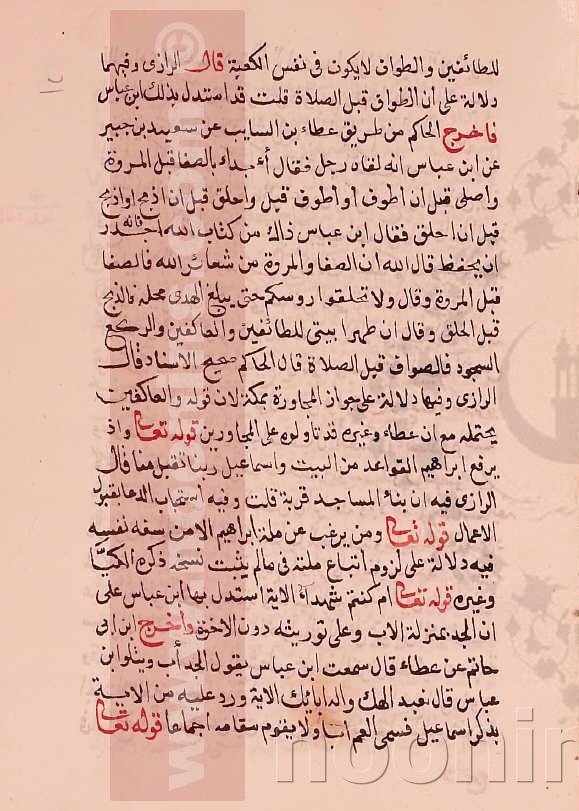 للطائفين والطواف لايكون فى نفس الكعبة قال الرازى وفيهما
دلالة على أن الطواف قبل الصلاة قلت قد استدل بذلك ابن عباس
فاخرج الحاكم من طريق عطاء بن السايب عن سعيد بن جبير
عن ابن عباس انه لقاه رجل فقال أءبداء بالصفا قبل المروة
واصلى قبل ان اطوف أو اطوف قبل واحلق قبل ان اذبح او اذبح
قبل ان احلق فقال ابن عباس ذاك من كتاب الله فانه اجدر
ان يحفظ قال الله ان الصفا والمروة من شعائر الله فالصفا
قبل المروة وقال ولا تحلقوا روسكم حتى يبلغ الهدى محله فالذبح
قبل الحلق وقال ان طهرا بيتى للطائفين والعاكفين والركع
السجود فالطواف قبل الصلاة قال الحاكم صحيح الاسناد قال
الرازى وفيها دلالة على جواز المجاورة بمكة لان قوله والعاكفين
يحتمله مع ان عطاء وغيره قد تأولوه على المجاورين قوله تعالى واذ
يرفع ابراهيم القواعد من البيت واسماعيل ربنا تقبل منا قال
الرازى فيه ان بناء المساجد قربة قلت وفيه استحباب الدعا بقبول
الاعمال قوله تعالى ومن يرغب عن ملة ابراهيم الا من سفه نفسه
فيه دلالة على لزوم اتباع ملته فى مالم يثبت نسخه ذكره الكيا
وغيره قوله تعالى ام كنتم شهداء الاية استدل بها ابن عباس على
ان الجد بمنزلة الاب وعلى توريثه دون الاخوة واخرج ابن ابى
حاتم عن عطاء قال سمعت ابن عباس يقول الجد أب ويتلو ابن
عباس قال نعبد الهك واله ابائك الاية ورد عليه من الاية
بذكر اسماعيل فسمى العم ابا ولا يقوم مقامه اجماعا قوله تعالى
noor